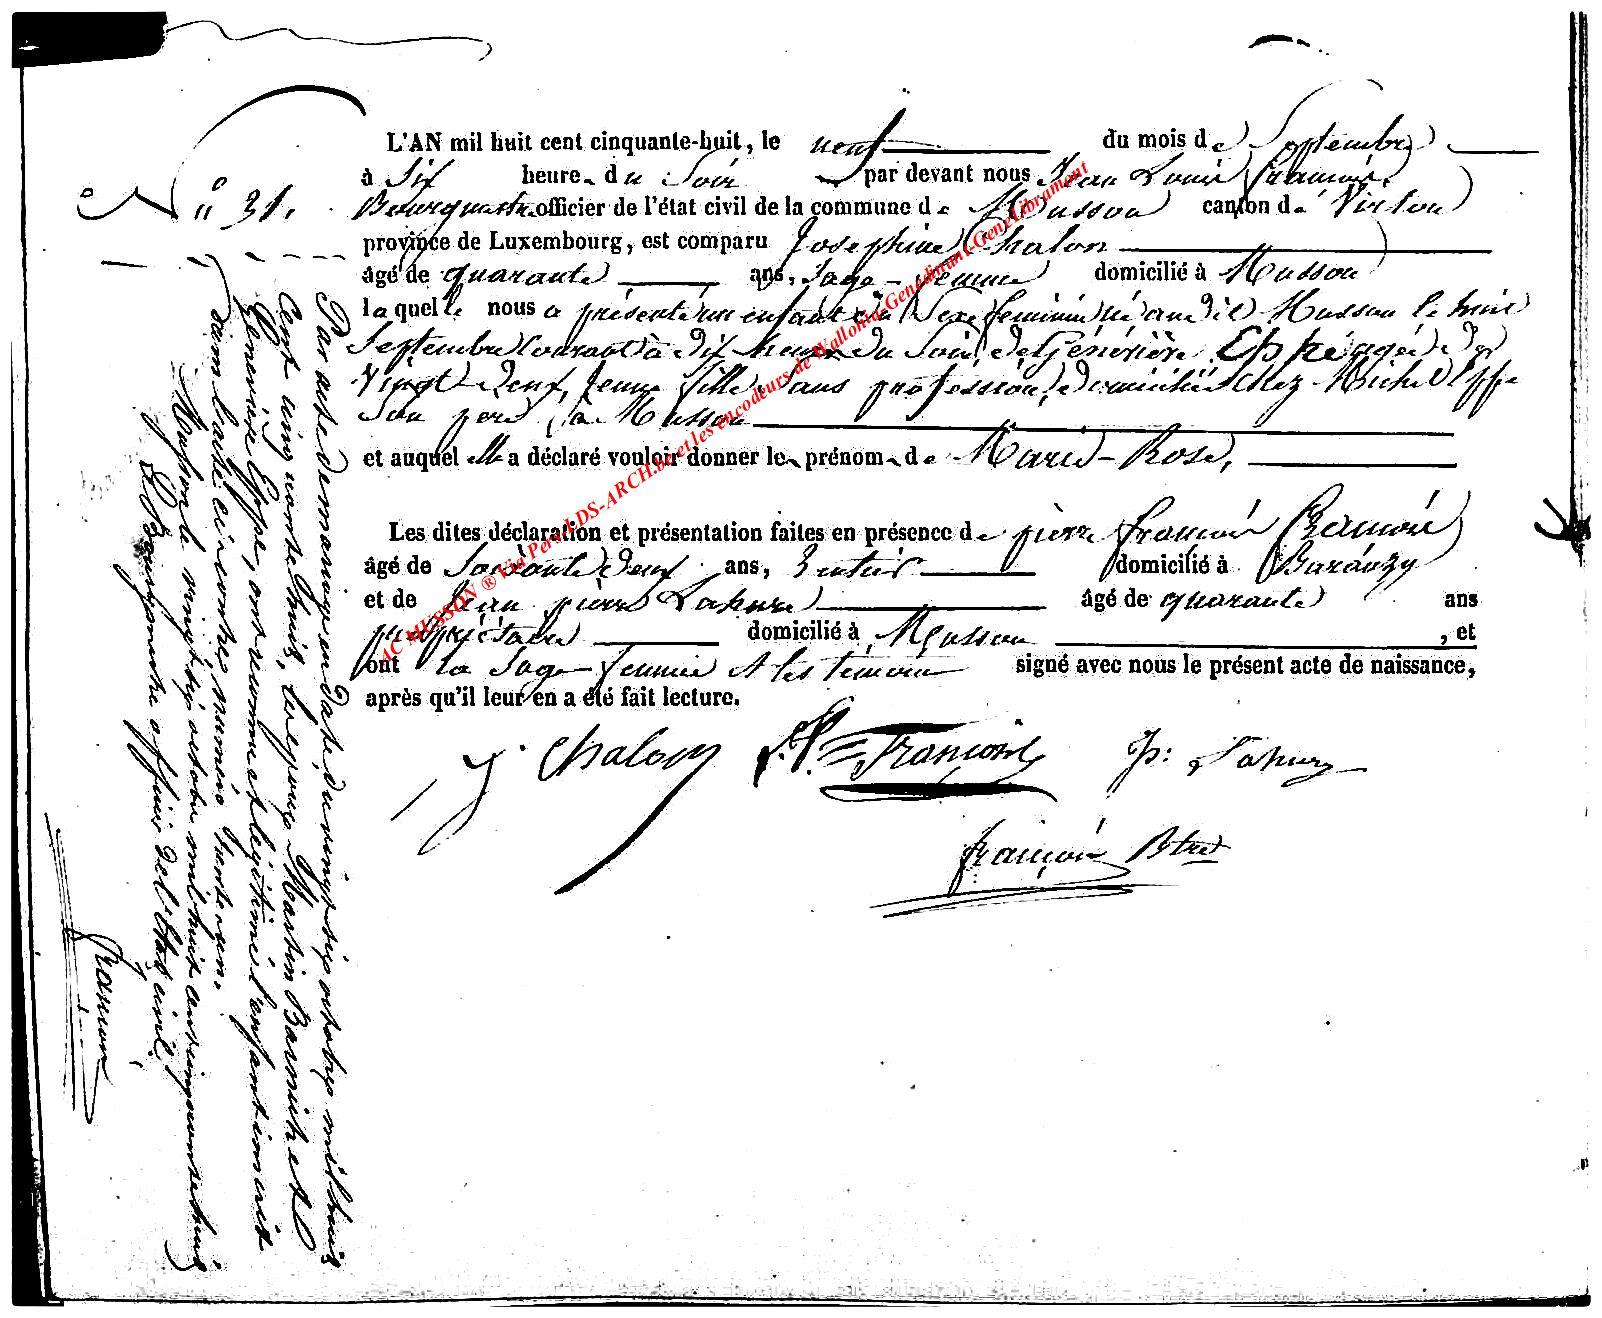 N° 31.
L'AN mil huit cent cinquante-huit, le neuf du mois de Septembre
à Six heures du Soir par devant nous Jean Louis François,
Bourgmestre officier de l'état civil de la commune de Musson canton de Virton
province de Luxembourg, est comparu Josephine Chalon
âgé de quarante ans, Sage-femme domicilié à Musson
laquelle nous a présenté un enfant du Sexe féminin né audit Musson le huit
Septembre Courant à dix heures du Soir, de Généviève Eppe agée de
vingt neuf, jeune fille, sans profession, domiciliée chez Michel Eppe
Son père, à Musson
et auquel elle a déclaré vouloir donner les prénoms de Marie-Rose,
Les dites déclaration et présentation faites en présence de pierre françois
âgé de Soixante deux ans, Rentier domicilié à Baranzy
et de Jean pierre Lahure âgé de quarante ans
propriétaire domicilié à Musson, et
ont la Sage femme et les témoins signé avec nous le présent acte de naissance,
après qu'il leur en a été fait lecture.
J. Chalon P. Lahure
françois Btre
Par acte de mariage en date du vingt six octobre mil huit
cent cinquante huit, les époux Martin et
Généviève Eppe, ont reconnu et légitimé l'enfant inscrit
dans l'acte ci-contre numéro trente un.
Musson le vingt six octobre mil huit cent cinquante huit
Le Bourgmestre officier de l'état civil,
françois
AC MUSSON ® Via Pero LDS-ARCH.be et les encodeurs de Wallonia-Genedinant-Gen-Libramont